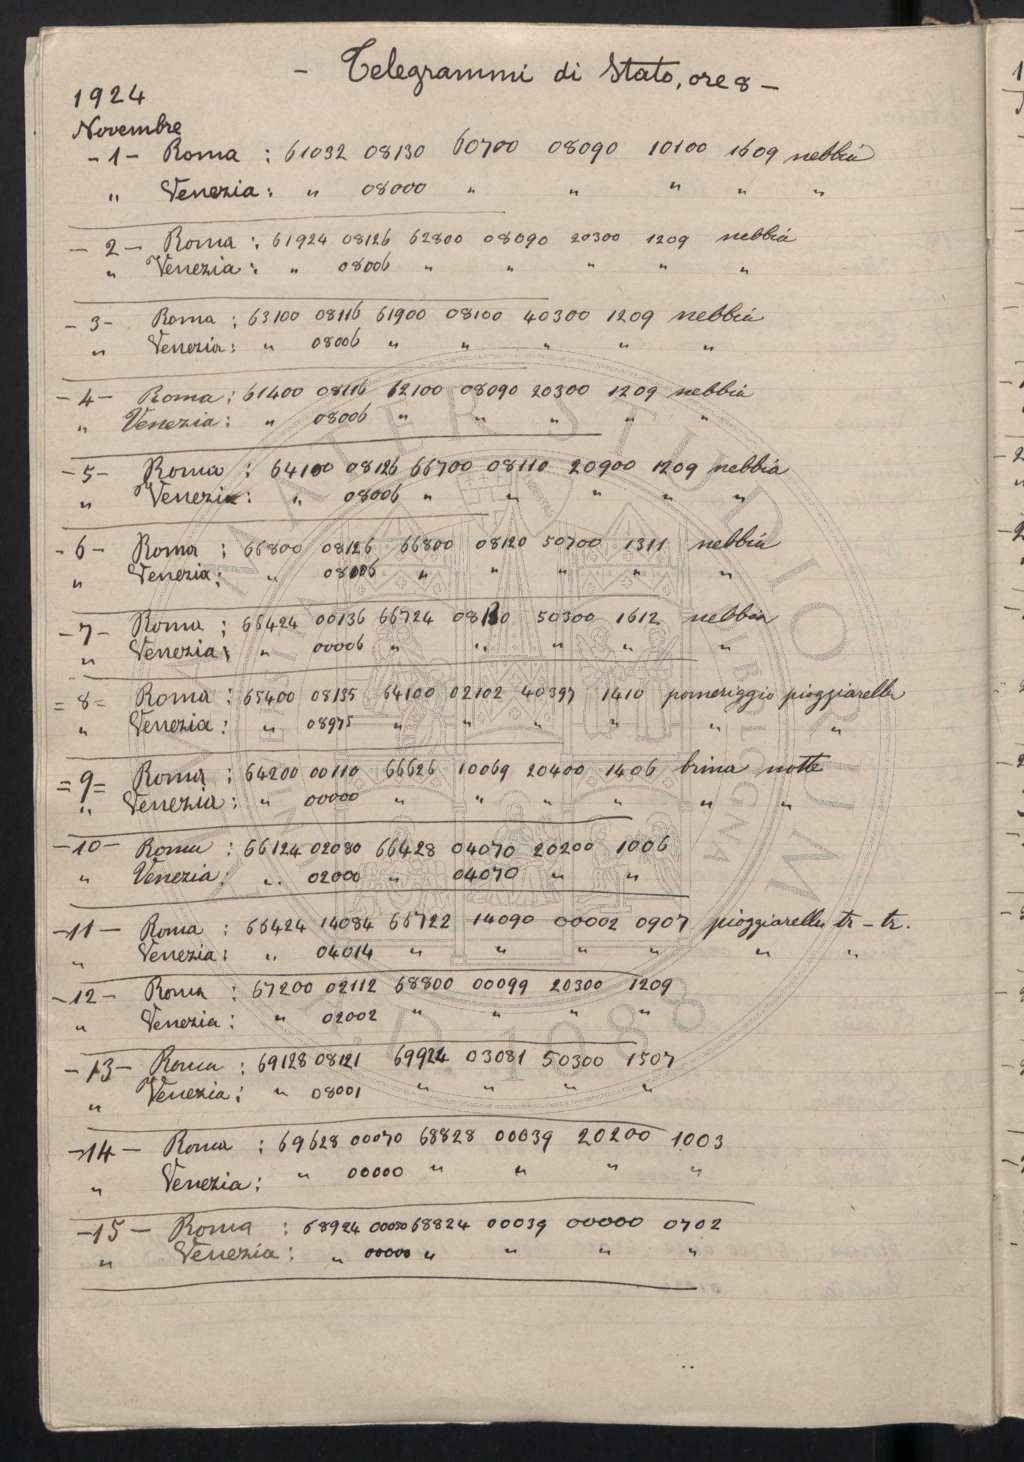 - Telegrammi di Stato, ore 8 -
1924
Novembre
- 1 - Roma : 61032 08130 60700 08090 10100 1609 nebbia
" Venezia : " 08000 " " " " "
- 2 - Roma : 61924 08126 62800 08090 20300 1209 nebbia
" Venezia : " 08006 " " " " "
- 3 - Roma : 63100 08116 61900 08100 40300 1209 nebbia
" Venezia : " 08006 " " " " "
- 4 - Roma : 61400 08116 62100 08090 20300 1209 nebbia
" Venezia : " 08006 " " " " "
- 5 - Roma : 64100 08126 66700 08110 20900 1209 nebbia
" Venezia : " 08006 " " " " "
- 6 - Roma : 66800 08126 66800 08120 50700 1311 nebbia
" Venezia : " 08006 " " " " "
- 7 - Roma : 66424 00136 66724 08130 50300 1612 nebbia
" Venezia : " 00006 " " " " "
= 8 = Roma : 65400 08135 64100 02102 40397 1410 pomeriggio pioggiarella
" Venezia : " 08975 " " " " " "
= 9 = Roma : 64200 00110 66626 10069 20400 1406 brina notte
" Venezia : " 00000 " " " " " "
- 10 - Roma : 66124 02080 66428 04070 20200 1006
" Venezia : " 02000 " 04070 " "
- 11 - Roma : 66424 14084 66722 14090 00002 0907 pioggiarella tr - tr.
" Venezia : " 04014 " " " " " "
- 12 - Roma : 67200 02112 68800 00099 20300 1209
" Venezia : " 02002 " " " "
- 13 - Roma : 69128 08121 69924 03081 50300 1507
" Venezia : " 08001 " " " "
- 14 - Roma : 69628 00070 68828 00039 20200 1003
" Venezia : " 00000 " " " "
- 15 - Roma : 68924 00080 68824 00039 00000 0702
" Venezia : " 00000 " " " "
ALMA MATER STUDIORUM
A.D. 1088